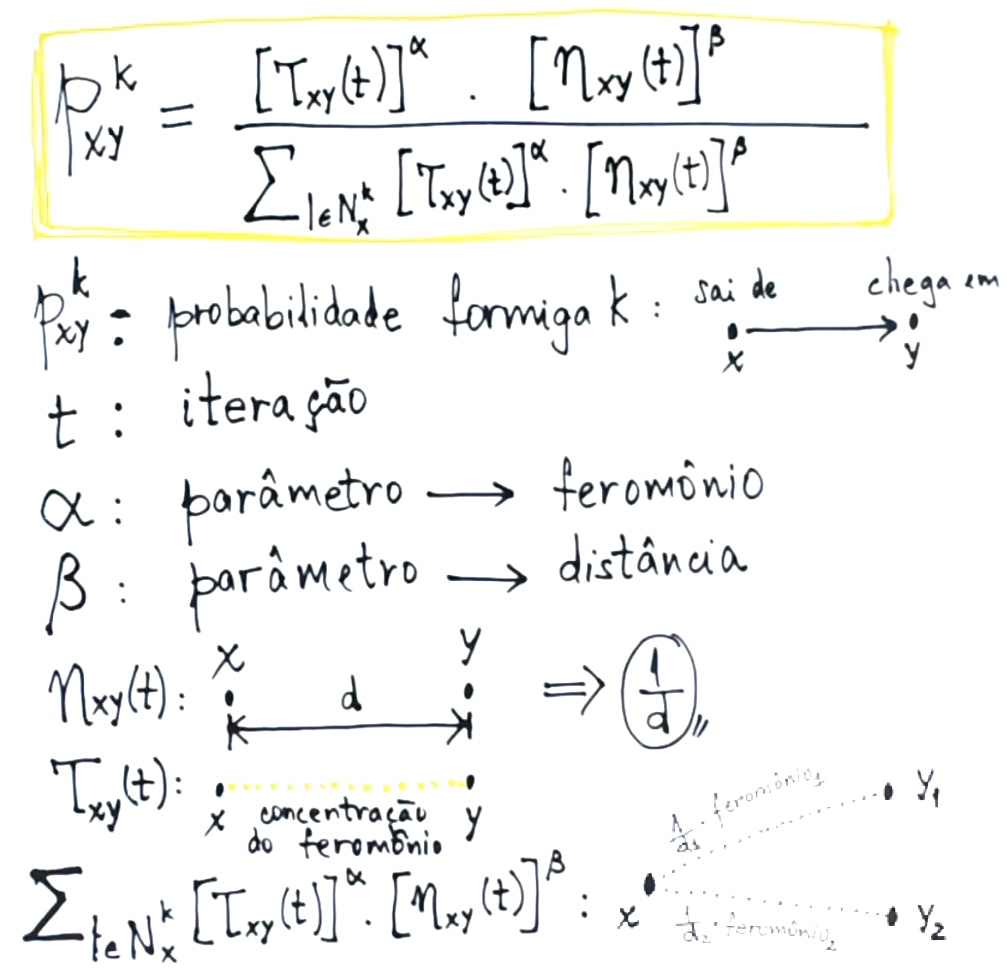 p^k_xy = [τ_xy(t)]^α . [η_xy(t)]^β / ∑_l∈N^k_x [τ_xy(t)]^α . [η_xy(t)]^β
p^k_xy : probabilidade formiga k : sai de x → chega em y
t : iteração
α : parâmetro → feromônio
β : parâmetro → distância
η_xy(t) : x d y ⇒ 1/d
τ_xy(t) : x y concentração do feromônio
∑_l∈N^k_x [τ_xy(t)]^α . [η_xy(t)]^β : x
1/d1 . feromônio1 y1
1/d2 . feromônio2 y2